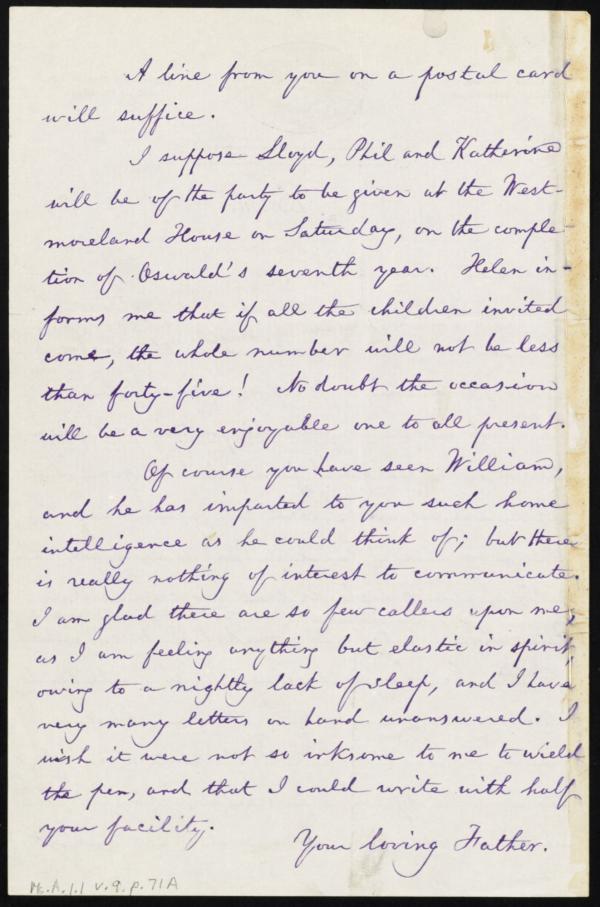 A line from you on a postal card
will suffice.
I suppose Lloyd, Phil and Katherine
will be of the party to be given at the West-
moreland House on Saturday, on the comple-
tion of Oswald's seventh year. Helen in-
forms me that if all the children invited
come, the whole number will not be less
than forty-five! No doubt the occasion
will be a very enjoyable one to all present.
Of course you have seen William,
and he has imparted to you such home
intelligence as he could think of; but there
is really nothing of interest to communicate.
I am glad there are so few callers upon me,
as I am feeling anything but elastic in spirit,
owing to a nightly lack of sleep, and I have
very many letters on hand unanswered. I
wish it were not so irksome to me to wield
the pen, and that I could write with half
your facility.
Your loving Father.
Ms.A.1.1 v.9.p.71A